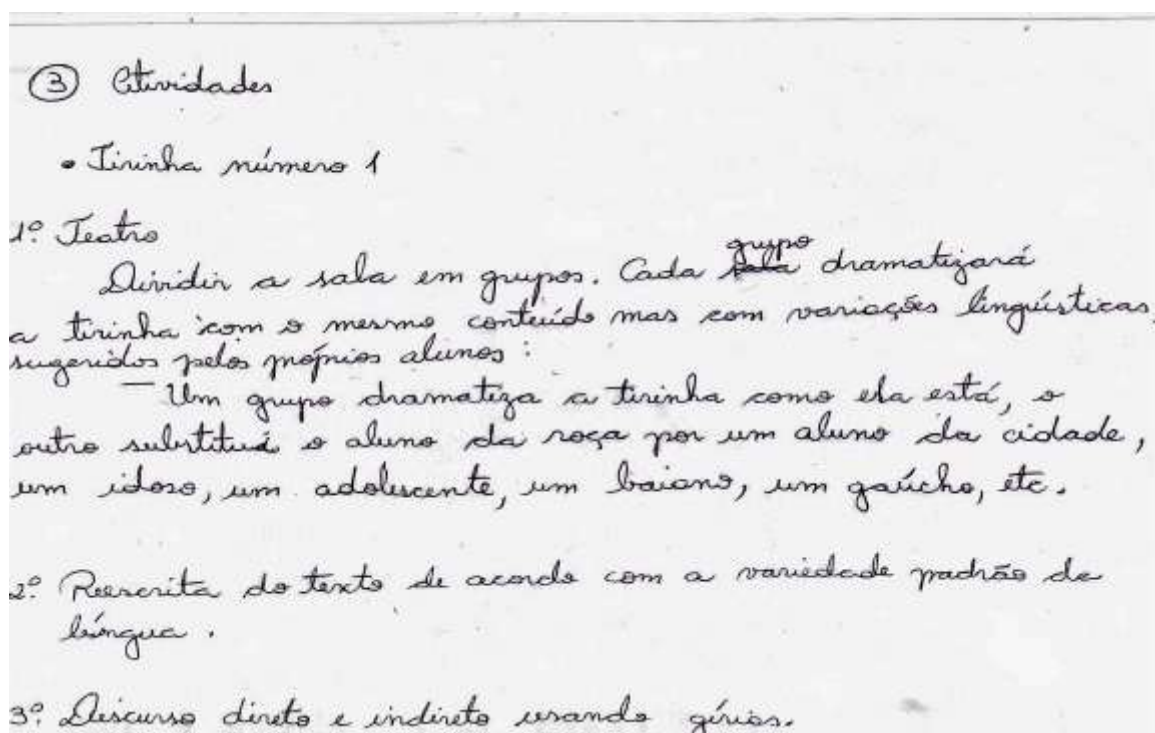 ③ Atividades
• Tirinha número 1
1º Teatro
Dividir a sala em grupos. Cada sala grupo dramatizará
a tirinha com o mesmo conteúdo mas com variações linguísticas,
sugeridos pelos próprios alunos:
— Um grupo dramatiza a tirinha como ela está, o
outro substitui o aluno da roça por um aluno da cidade,
um idoso, um adolescente, um baiano, um gaúcho, etc.
2º Reescrita do texto de acordo com a variedade padrão da
língua.
3º Discurso direto e indireto usando gírias.